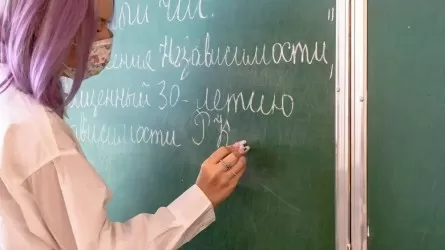 ый час. "
ения Независимости,
щенный 30-летию
ависимости РК